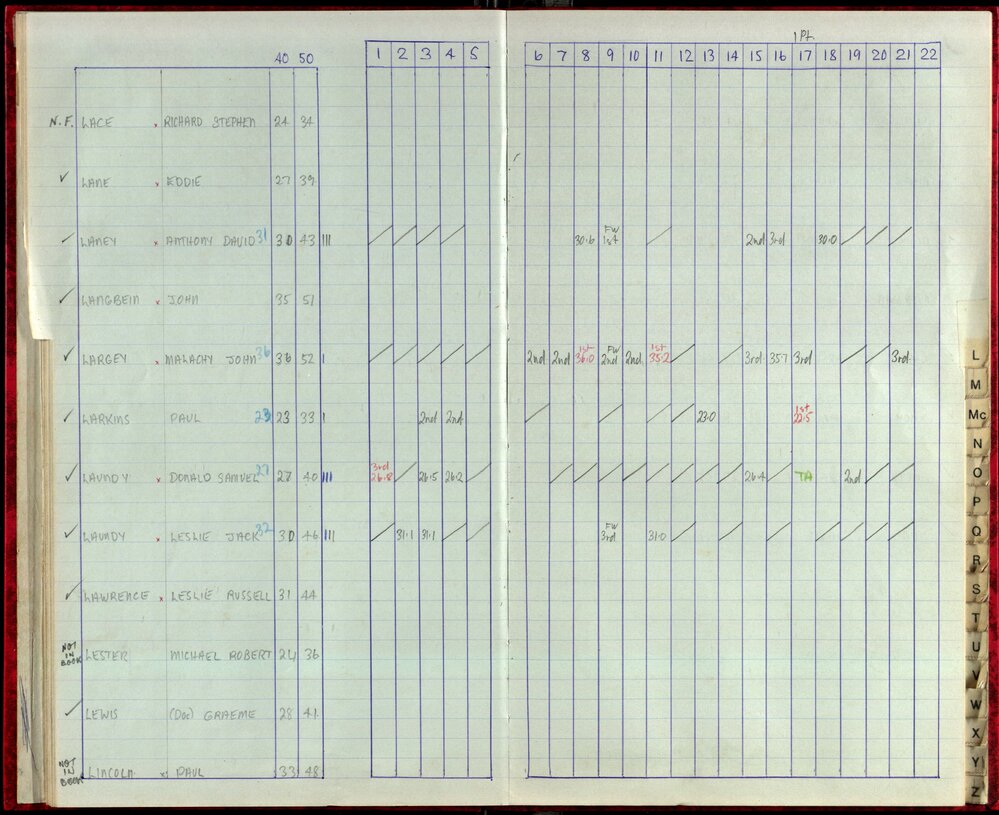 1 Pt.
40 50 1 2 3 4 5 6 7 8 9 10 11 12 13 14 15 16 17 18 19 20 21 22
N.F. LACE x RICHARD STEPHEN 24 34
✓ LANE x EDDIE 27 39
✓ LANEY x ANTHONY DAVID 31 30 43 III / / / / / 30.6 FW 1st / 2nd 3rd 30.0 / / /
✓ LANGBEIN x JOHN 35 51
✓ LARGEY x MALACHY JOHN 36 36 52 I / / / / / 2nd 2nd 1st 36.0 FW 2nd 2nd 1st 35.2 / / 3rd 35.7 3rd / / 3rd
✓ LARKINS PAUL 23 23 33 I 2nd 2nd / / / / 23.0 1st 22.5
✓ LAUNDY x DONALD SAMUEL 27 27 40 III 3rd 26.8 / 26.5 26.2 / / / / / / / / / 26.4 / TA 2nd / /
✓ LAUNDY x LESLIE JACK 32 30 46 III / 31.1 31.1 / / FW 3rd 31.0 / / / / / / /
✓ LAWRENCE x LESLIE RUSSELL 31 44
NOT IN BOOK LESTER MICHAEL ROBERT 24 36
✓ LEWIS (Doc) GRAEME 28 41
NOT IN BOOK LINCOLN x PAUL 33 48
L
M
Mc
N
O
P
Q
R
S
T
U
V
W
X
Y
Z